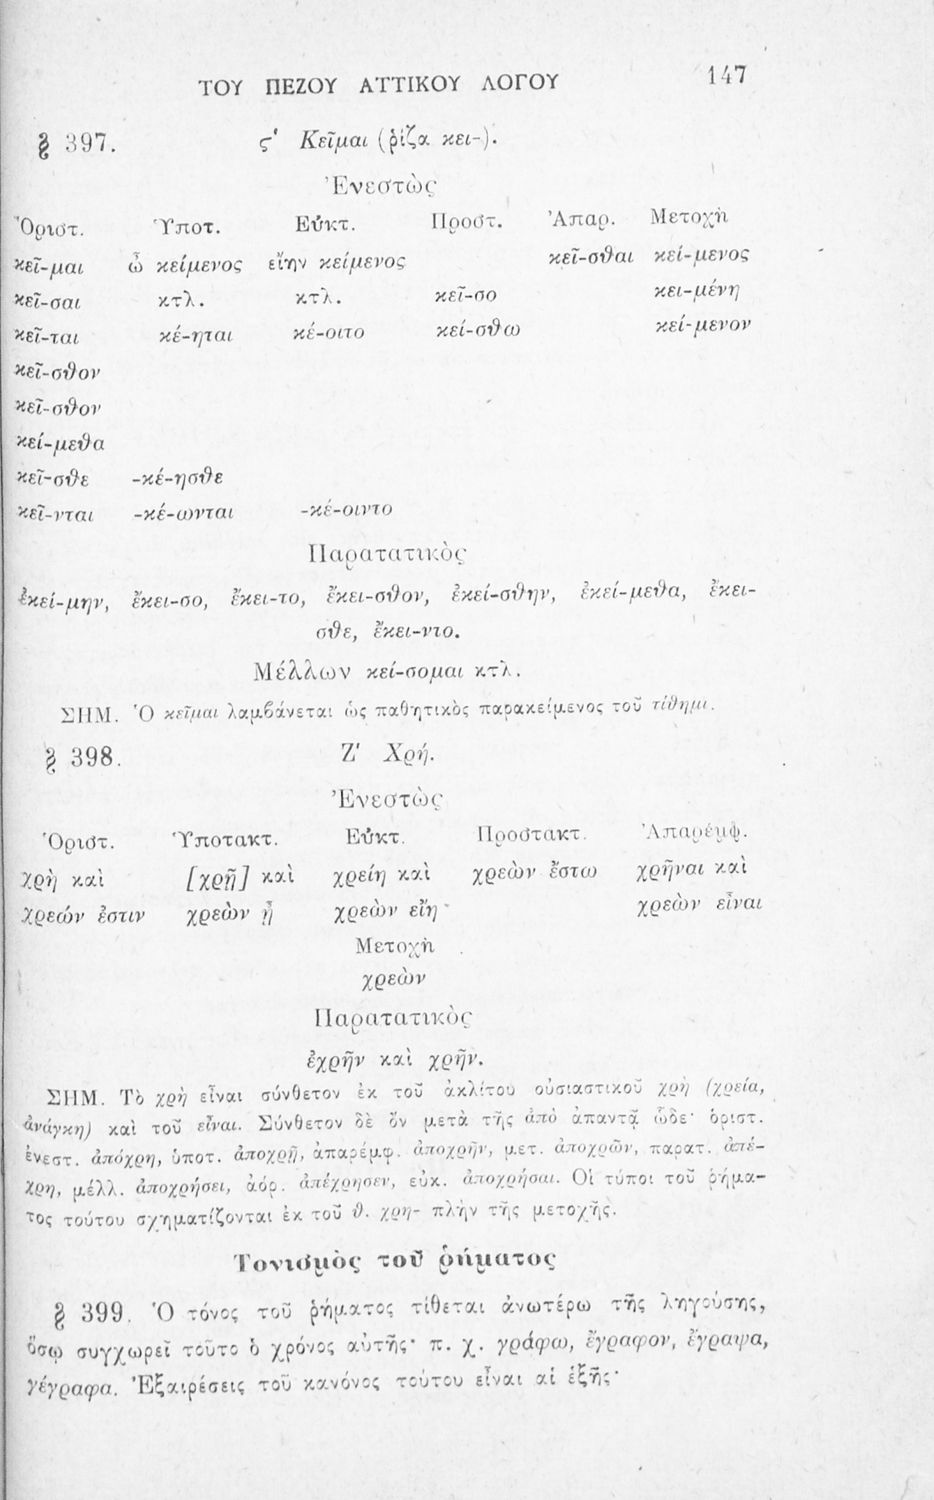 ΤΟΥ ΠΕΖΟΥ ΑΤΤΙΚΟΥ ΛΟΓΟΥ 147
§ 397. ϛ' Κεῖμαι (ῥίζα κει-).
Ἐνεστὼς
Ὁριστ. Ὑποτ. Εὐκτ. Προστ. Ἀπαρ. Μετοχὴ
κεῖ-μαι ὦ κείμενος εἴην κείμενος κεῖ-σθαι κεί-μενος
κεῖ-σαι κτλ. κτλ. κεῖ-σο κει-μένη
κεῖ-ται κέ-ηται κέ-οιτο κεί-σθω κεί-μενον
κεῖ-σθον
κεῖ-σθον
κεί-μεθα
κεῖ-σθε -κέ-ησθε
κεῖ-νται -κέ-ωνται -κέ-οιντο
Παρατατικὸς
ἐκεί-μην, ἔκει-σο, ἔκει-το, ἔκει-σθον, ἐκεί-σθην, ἐκεί-μεθα, ἔκει-
σθε, ἔκει-ντο.
Μέλλων κεί-σομαι κτλ.
ΣΗΜ. Ὁ κεῖμαι λαμβάνεται ὡς παθητικὸς παρακείμενος τοῦ τίθημι.
§ 398. Ζ' Χρή.
Ἐνεστὼς
Ὁριστ. Ὑποτακτ. Εὐκτ. Προστακτ. Ἀπαρέμφ.
χρὴ καὶ [χρῇ] καὶ χρείη καὶ χρεὼν ἔστω χρῆναι καὶ
χρεών ἐστιν χρεὼν ᾖ χρεὼν εἴη χρεὼν εἶναι
Μετοχὴ
χρεὼν
Παρατατικὸς
ἐχρῆν καὶ χρῆν.
ΣΗΜ. Τὸ χρὴ εἶναι σύνθετον ἐκ τοῦ ἀκλίτου οὐσιαστικοῦ χρὴ (χρεία,
ἀνάγκη) καὶ τοῦ εἶναι. Σύνθετον δὲ ὂν μετὰ τῆς ἀπὸ ἀπαντᾷ ὧδε· ὁριστ.
ἐνεστ. ἀπόχρη, ὑποτ. ἀποχρῇ, ἀπαρέμφ. ἀποχρῆν, μετ. ἀποχρῶν, παρατ. ἀπέ-
χρη, μέλλ. ἀποχρήσει, ἀόρ. ἀπέχρησεν, εὐκ. ἀποχρήσαι. Οἱ τύποι τοῦ ῥήμα-
τος τούτου σχηματίζονται ἐκ τοῦ θ. χρη- πλὴν τῆς μετοχῆς.
Τονισμὸς τοῦ ῥήματος
§ 399. Ὁ τόνος τοῦ ῥήματος τίθεται ἀνωτέρω τῆς ληγούσης,
ὅσῳ συγχωρεῖ τοῦτο ὁ χρόνος αὐτῆς· π. χ. γράφω, ἔγραφον, ἔγραψα,
γέγραφα. Ἐξαιρέσεις τοῦ κανόνος τούτου εἶναι αἱ ἑξῆς·